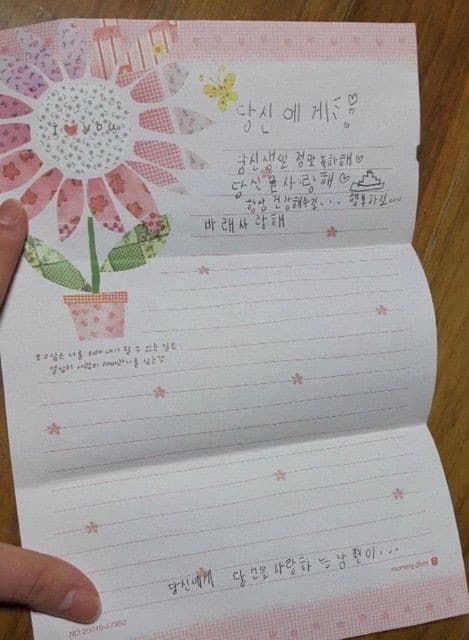 I ♥ you
당신에게
당신생일 정말 축하해♡
당신을사랑해♡
항상 건강해주길... 행복하길...
바래사랑해
보고싶은 너를 위해 내가 할 수 있는 일은
열심히 사랑의 해바라기를 심는것
당신에게 당신을사랑하는남편이...
morning glory
NO.25010-57950